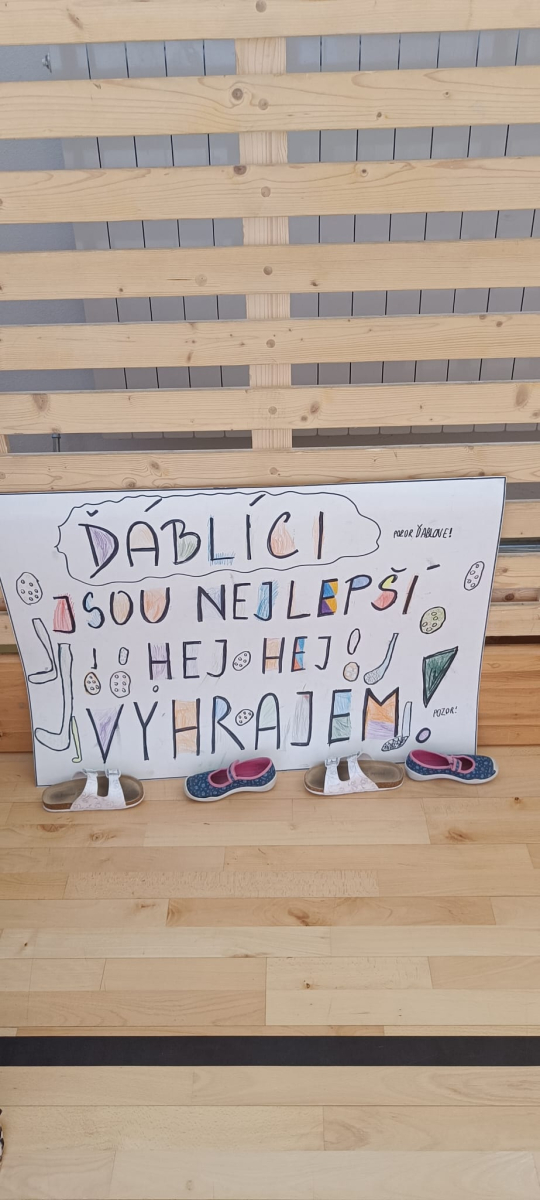 ĎÁBLÍCI
POZOR ĎÁBLOVÉ!
JSOU NEJLEPŠÍ
! HEJ HEJ !
VÝHRAJEM
POZOR!